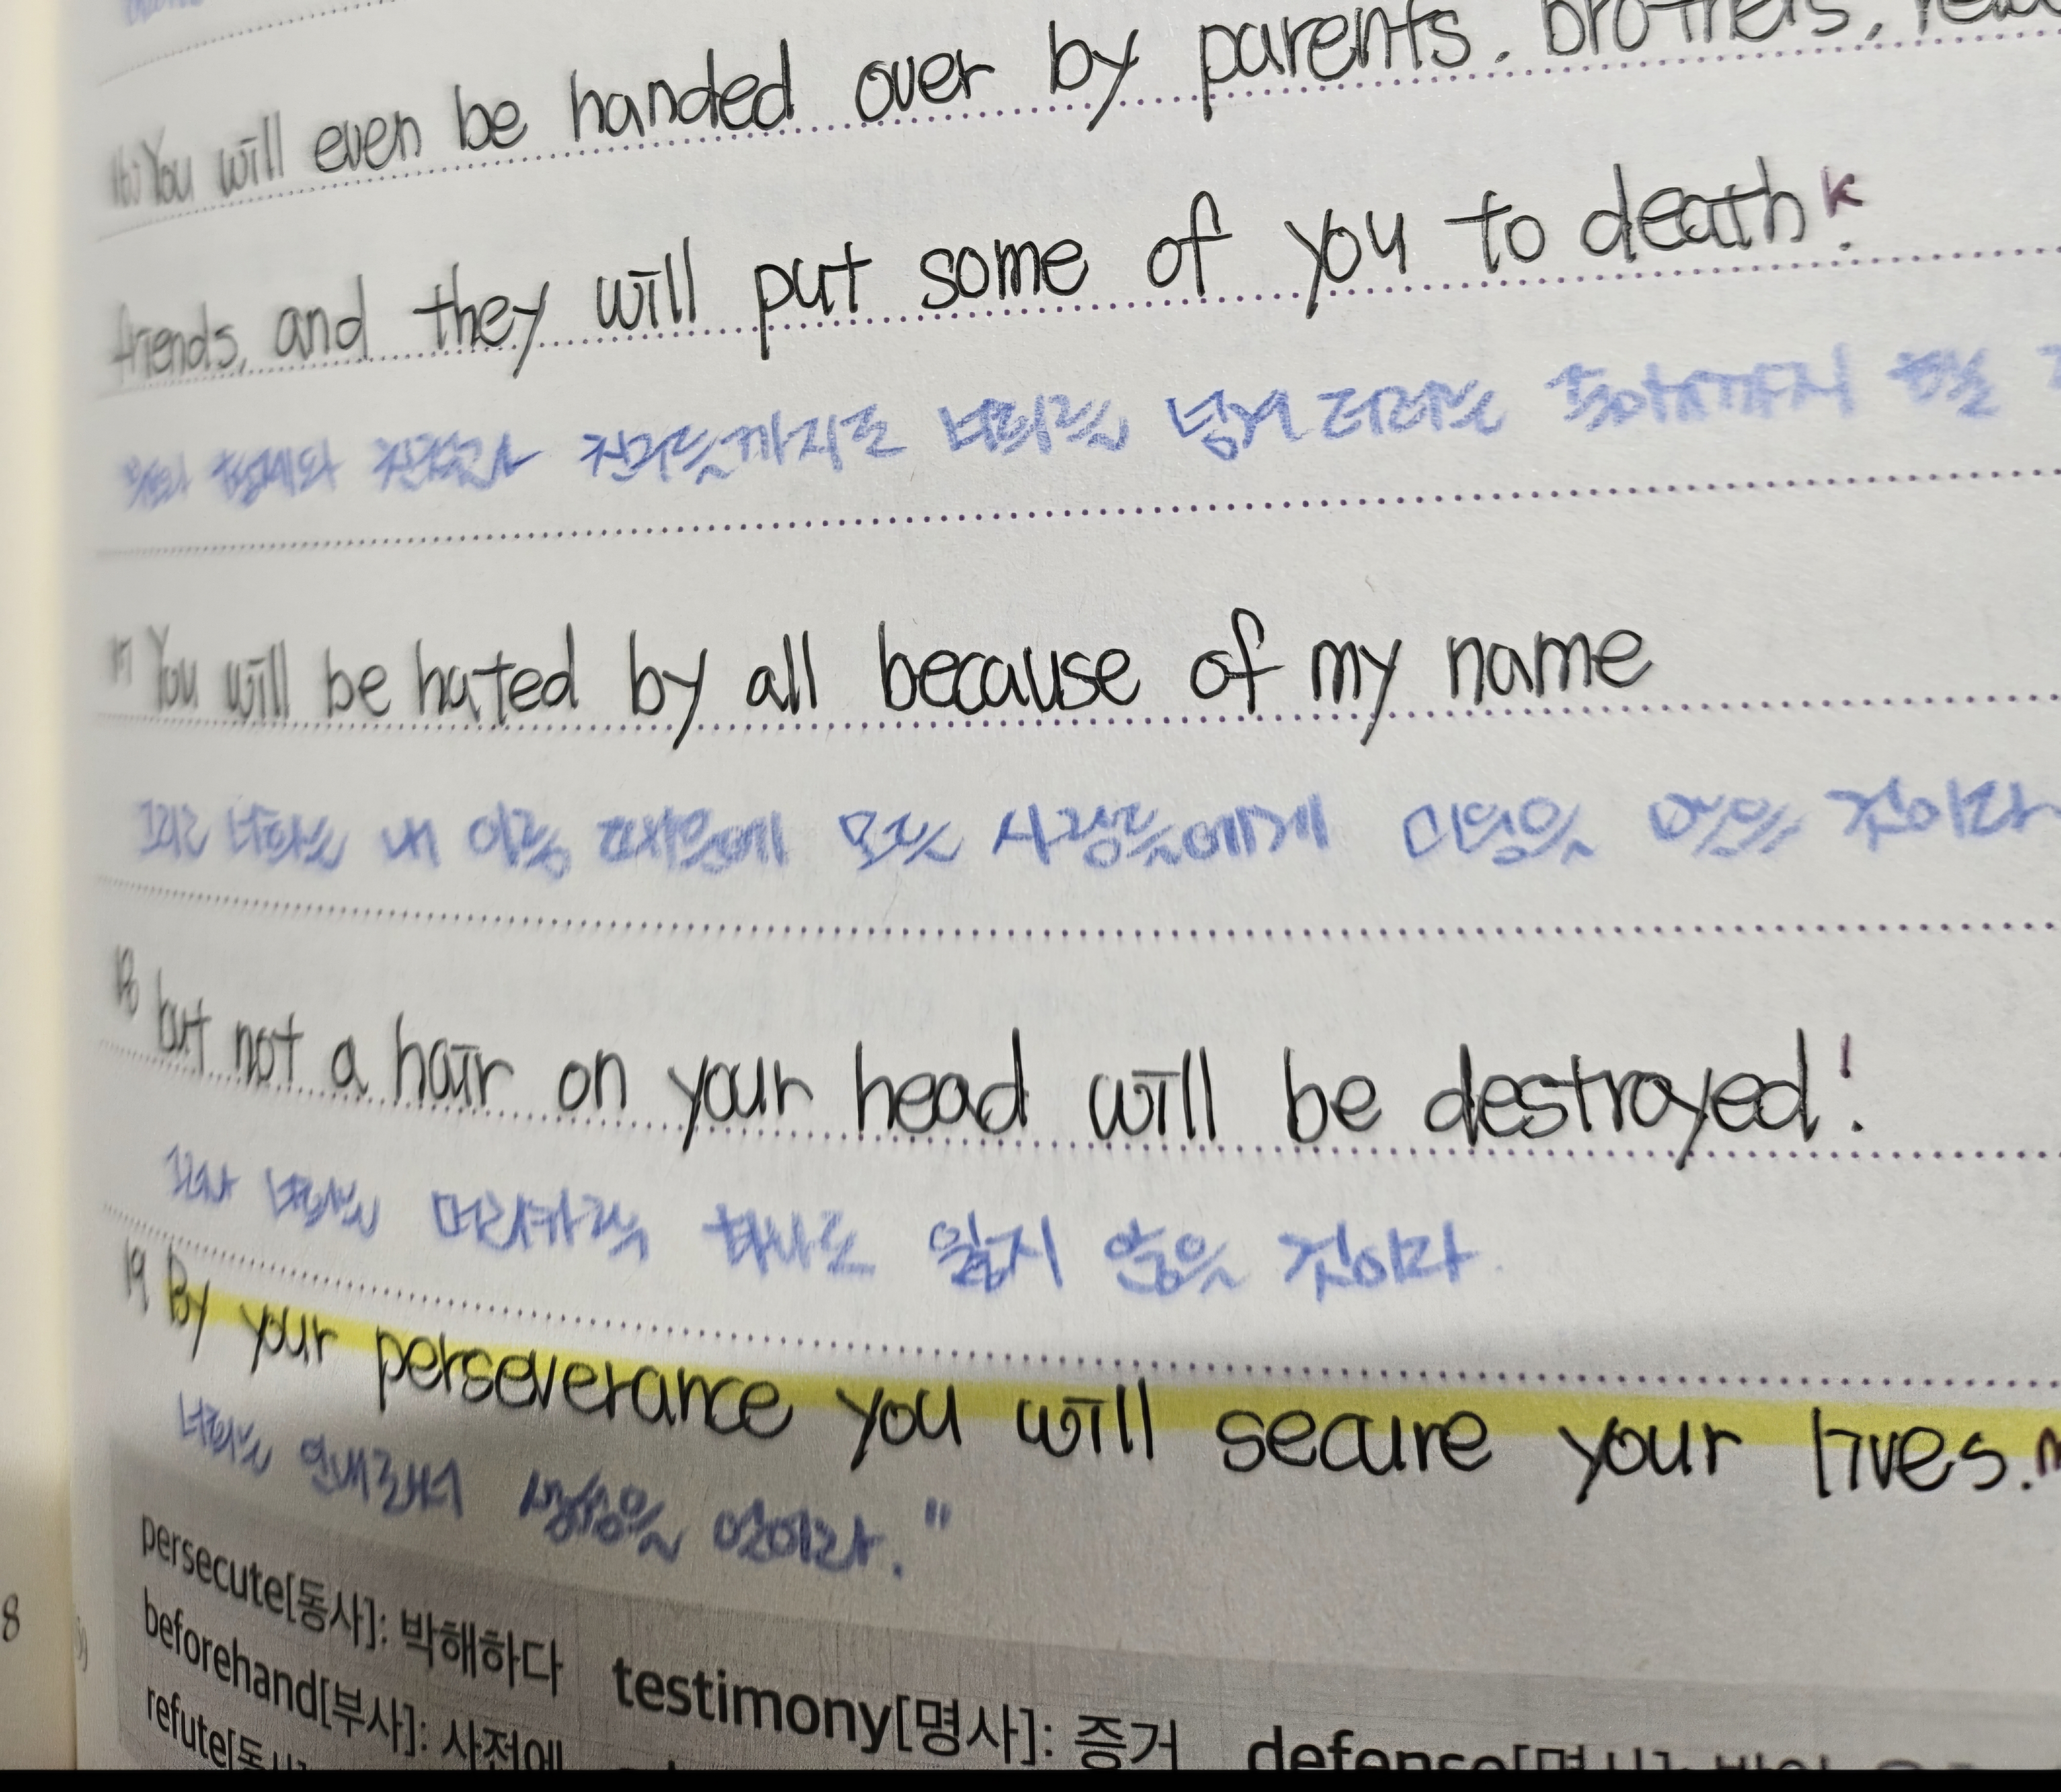 16) You will even be handed over by parents, brothers,
friends, and they will put some of you to death k.
형제와 친척과 친구들까지도 너희를 넘겨 더러는 죽이기까지 할
17 You will be hated by all because of my name
그리고 너희는 내 이름 때문에 모든 사람들에게 미움을 받을 것이다
18 but not a hair on your head will be destroyed l.
그러나 너희는 머리카락 하나도 잃지 않을 것이다
19 By your perseverance you will secure your lives.
너희는 인내로써 생명을 얻어라."
persecute[동사]: 박해하다 testimony[명사]: 증거 defense[명사]:
beforehand[부사]: 사전에
refute[동사]
8